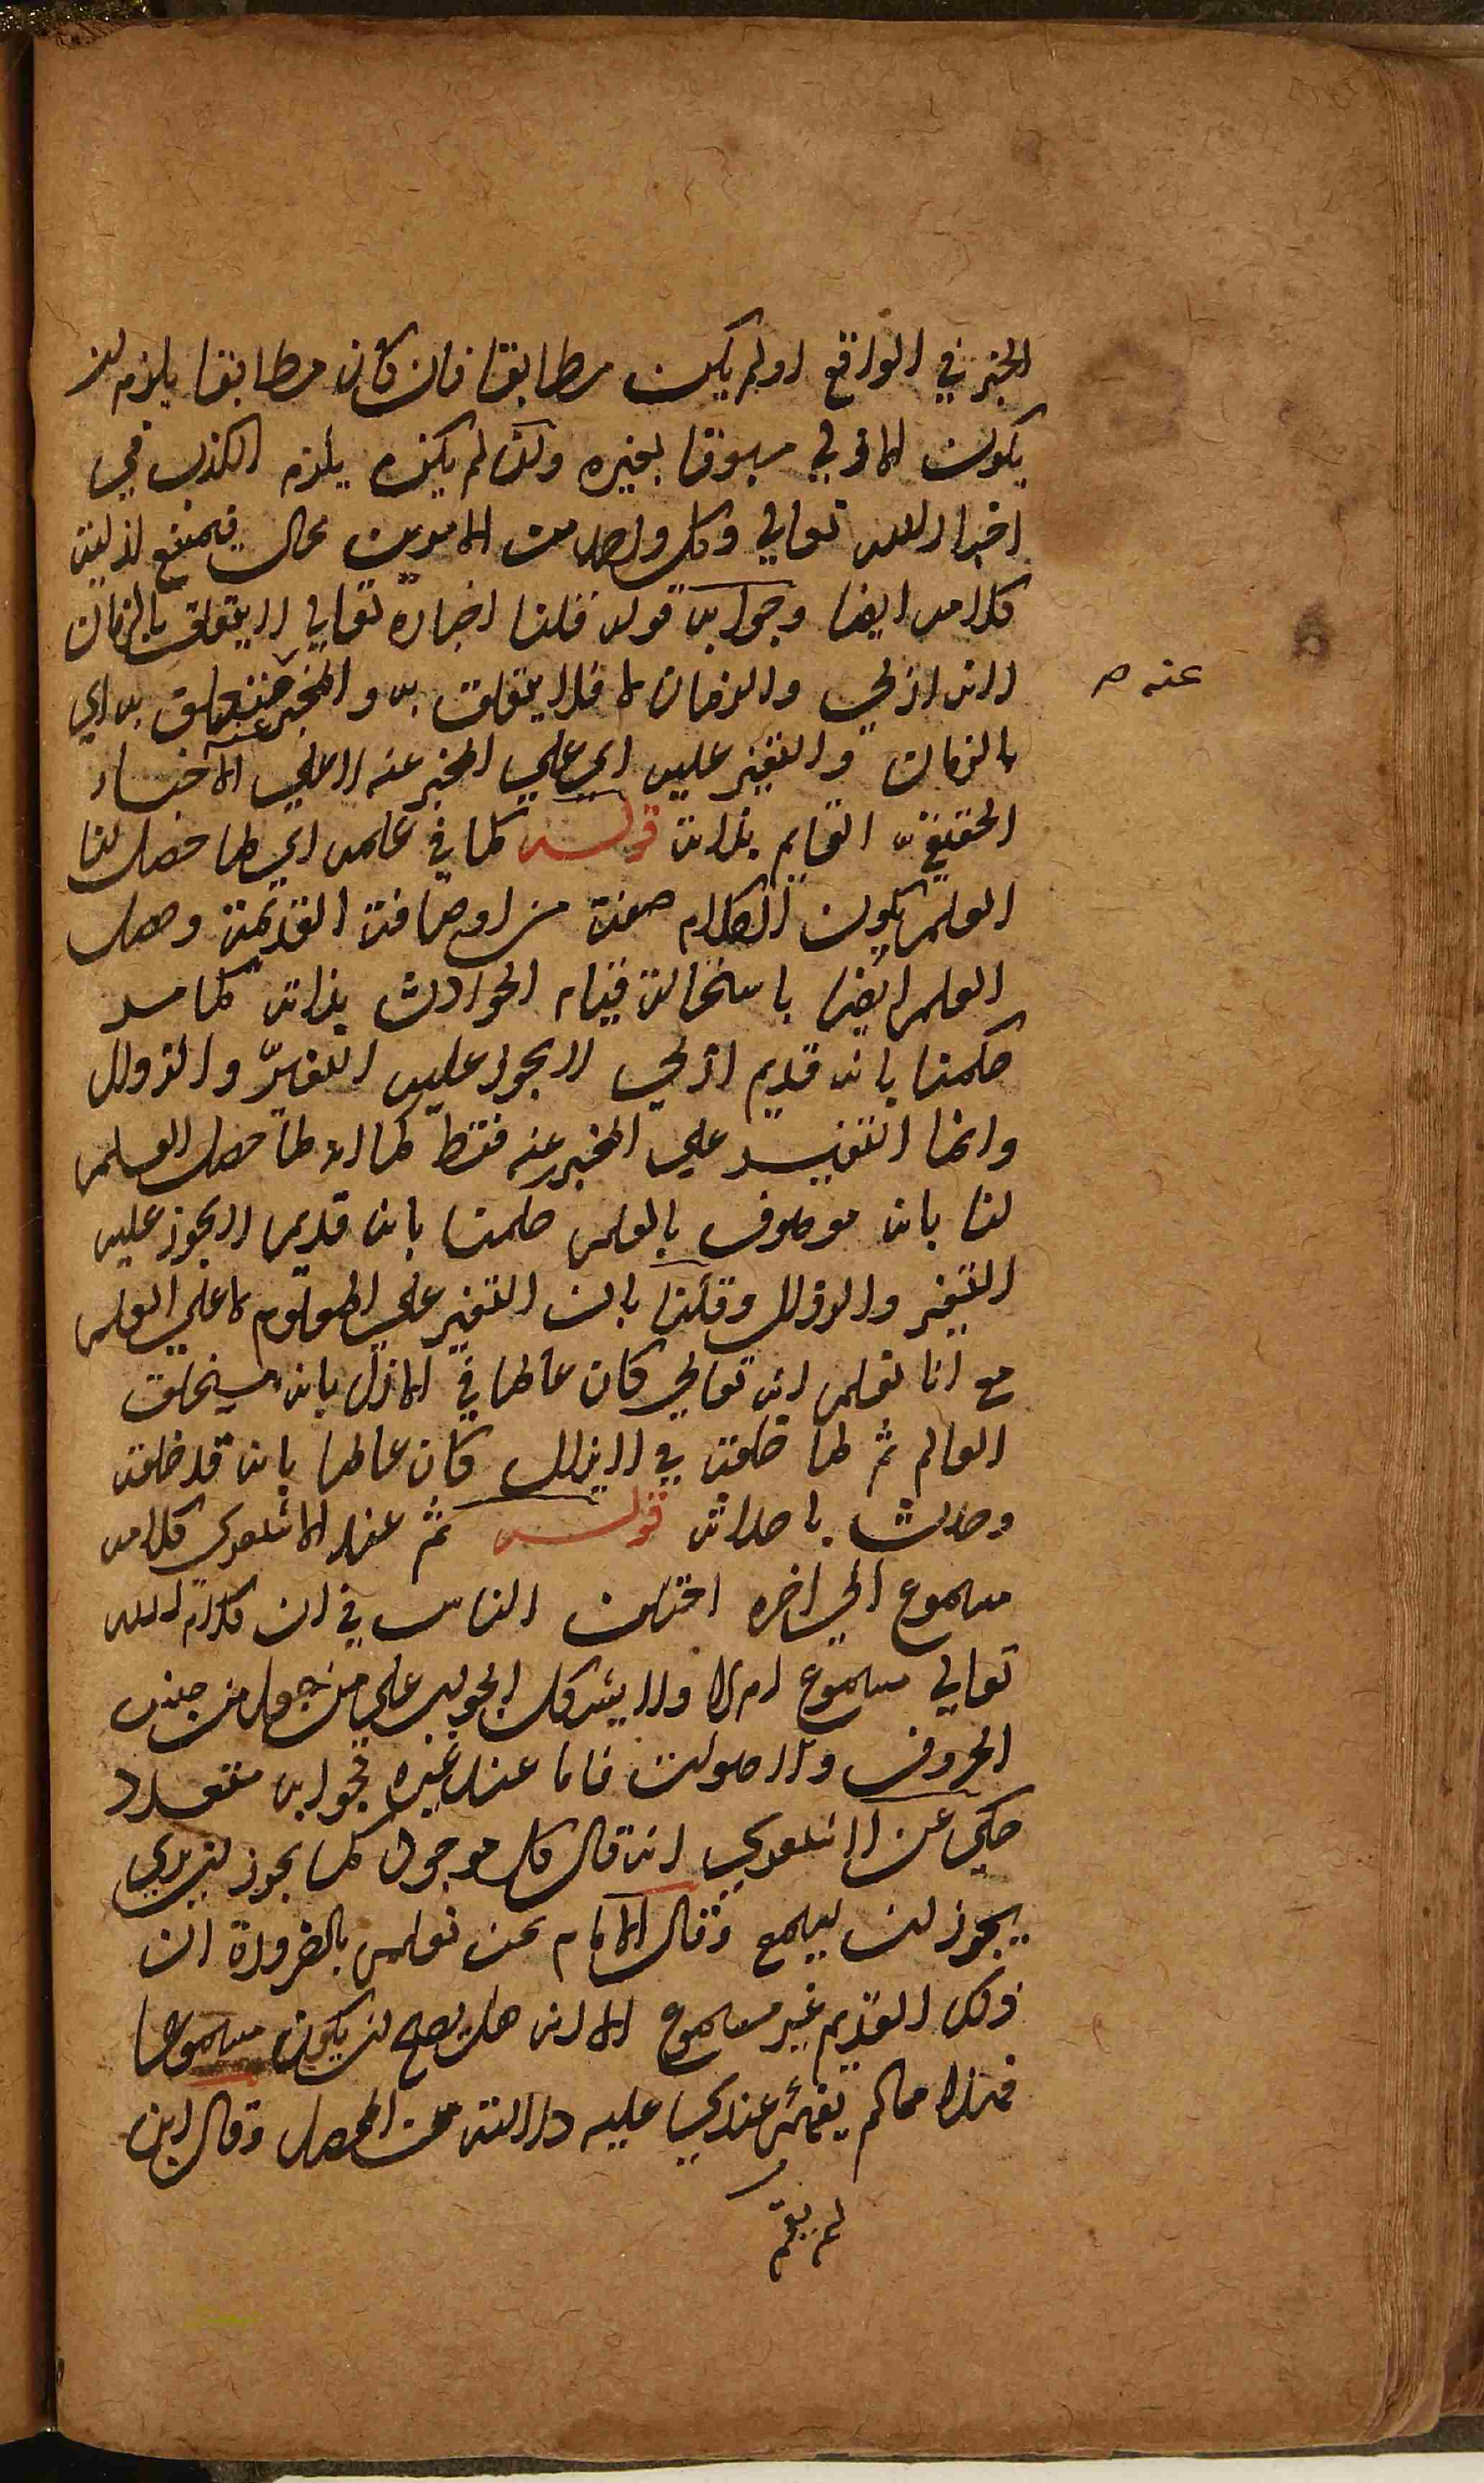 الخبر في الواقع او لم يكن مطابقا فان كان مطابقا يلزم ان
يكون الازلي مسبوقا بغيره وان لم يكن يلزم الكذب في
اخبار الله تعالى وكل واحد من الامرين محال فيمتنع ازلية
كلامه ايضا وجوابه قوله قلنا اخباره تعالى لا يتعلق بالزمان
لانه ازلي والزمان لا فلا يتعلق به والمخبر عنه متعلق به اي
عنه صح
بالزمان والتغير عليه اي على المخبر عنه لا على الاخبار
الحقيقة القايم بذاته قوله كما في علمه اي لما حصل لنا
العلم بكون الكلام صفة من اوصافه القديمة وحصل
العلم ايضا باستحالة قيام الحوادث بذاته كما مر
حكمنا بانه قديم ازلي لا يجوز عليه التغير والزوال
وانما التغير على المخبر عنه فقط كما انه لما حصل العلم
لنا بانه موصوف بالعلم حكمنا بانه قديم لا يجوز عليه
التغير والزوال وقلنا بان التغير على المعلوم لا على العلم
مع انا نعلم انه تعالى كان عالما في الازل بانه سيخلق
العالم ثم لما خلقه في لا يزال كان عالما بانه قد خلقه
وحدث باحداثه قوله ثم عند الاشعري كلامه
مسموع الى اخره اختلف الناس في ان كلام الله
تعالى مسموع ام لا ولا يشكل الجواب على من جعله من جنس
الحروف والاصوات فاما عند غيره فجوابه متعدد
حكي عن الاشعري انه قال كل موجود كما يجوز ان يرى
يجوز ان يسمع وقال الامام نحن نعلم بالضرورة ان
ذلك القديم غير مسموع الا انه هل يصح ان يكون مسموعا
فهذا مما لم يقم عندي عليه دلالة من المحصل وقال ابن
لم يقم